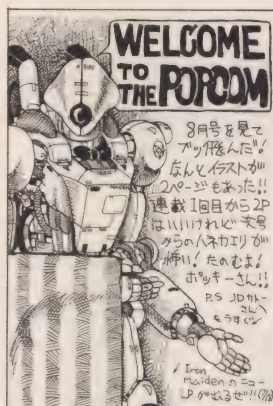 WELCOME
TO
THE POPCOM
8月号を見て
ブッ飛んだ!
なんとイラストが
2ページもあった!!
連載1回目から2P
はいいけれど次号
からのハネカエリが
怖い! たのむよ!
ポッキーさん!!
P.S JDカトー
さんへ
もうすぐ
Iron
Maidenのニュー
LPが出るぜ!!